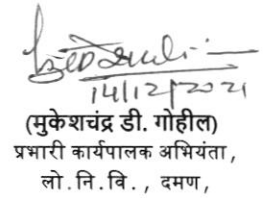 14/12/2021
(मुकेशचंद्र डी. गोहील)
प्रभारी कार्यपालक अभियंता,
लो.नि.वि., दमण,